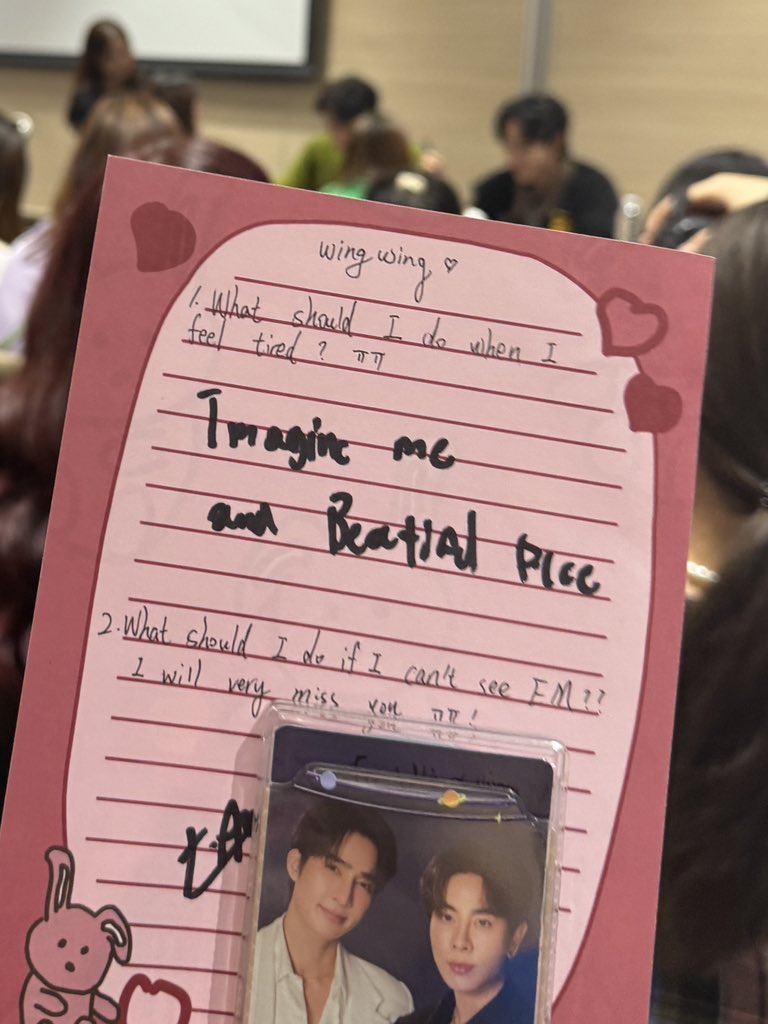 wing wing ♡
1. What should I do when I
feel tired? ㅠㅠ
Imagine me
and Beatiful Plce
2. What should I do if I can't see EM??
I will very miss you ㅠㅠ!